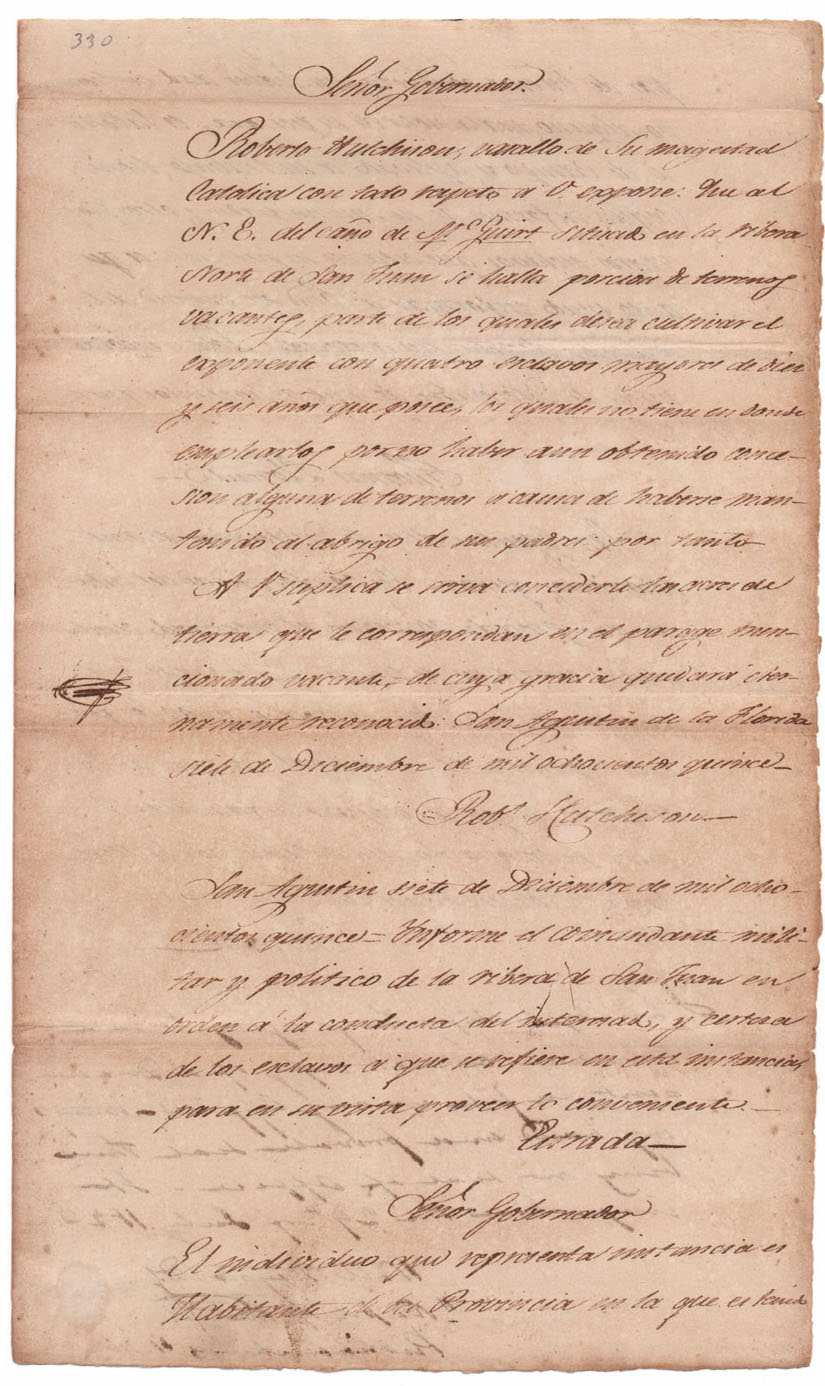 330
Señor Gobernador.
Roberto Hutchison, vasallo de Su magestad
Catolica con todo respeto a V. expone: Que al
N. E. del caño de Mc. Guirt situad en la ribera
Norte de San Juan se halla porcion de terrenos
vacantes, parte de los quales desea cultivar el
exponente con quatro esclavos mayores de diez
y seis años que posee, los quales no tiene en donde
emplearlos por no haber aun obtenido conce-
sion alguna de terrenos a causa de haberse man-
tenido al abrigo de sus padres: por tanto
A V. suplica se sirva concederle los acres de
tierra que le correspondan en el parage men-
cionado vacante, de cuya gracia quedará eter-
namente reconocid: San Agustin de la Florida
siete de Diciembre de mil ochocientos quince_
Robt. Hutchison_
San Agustin siete de Diciembre de mil ocho-
cientos quince = Informe el comandante mili-
tar y politico de la ribera de San Juan en
orden á la conducta del interesad, y certeza
de los esclavos a que se refiere en esta instancia,
para en su vista proveer lo conveniente_
Estrada_
Señor Gobernador
El individuo que representa instancia es
Habitante de la Provincia en la que es tenid